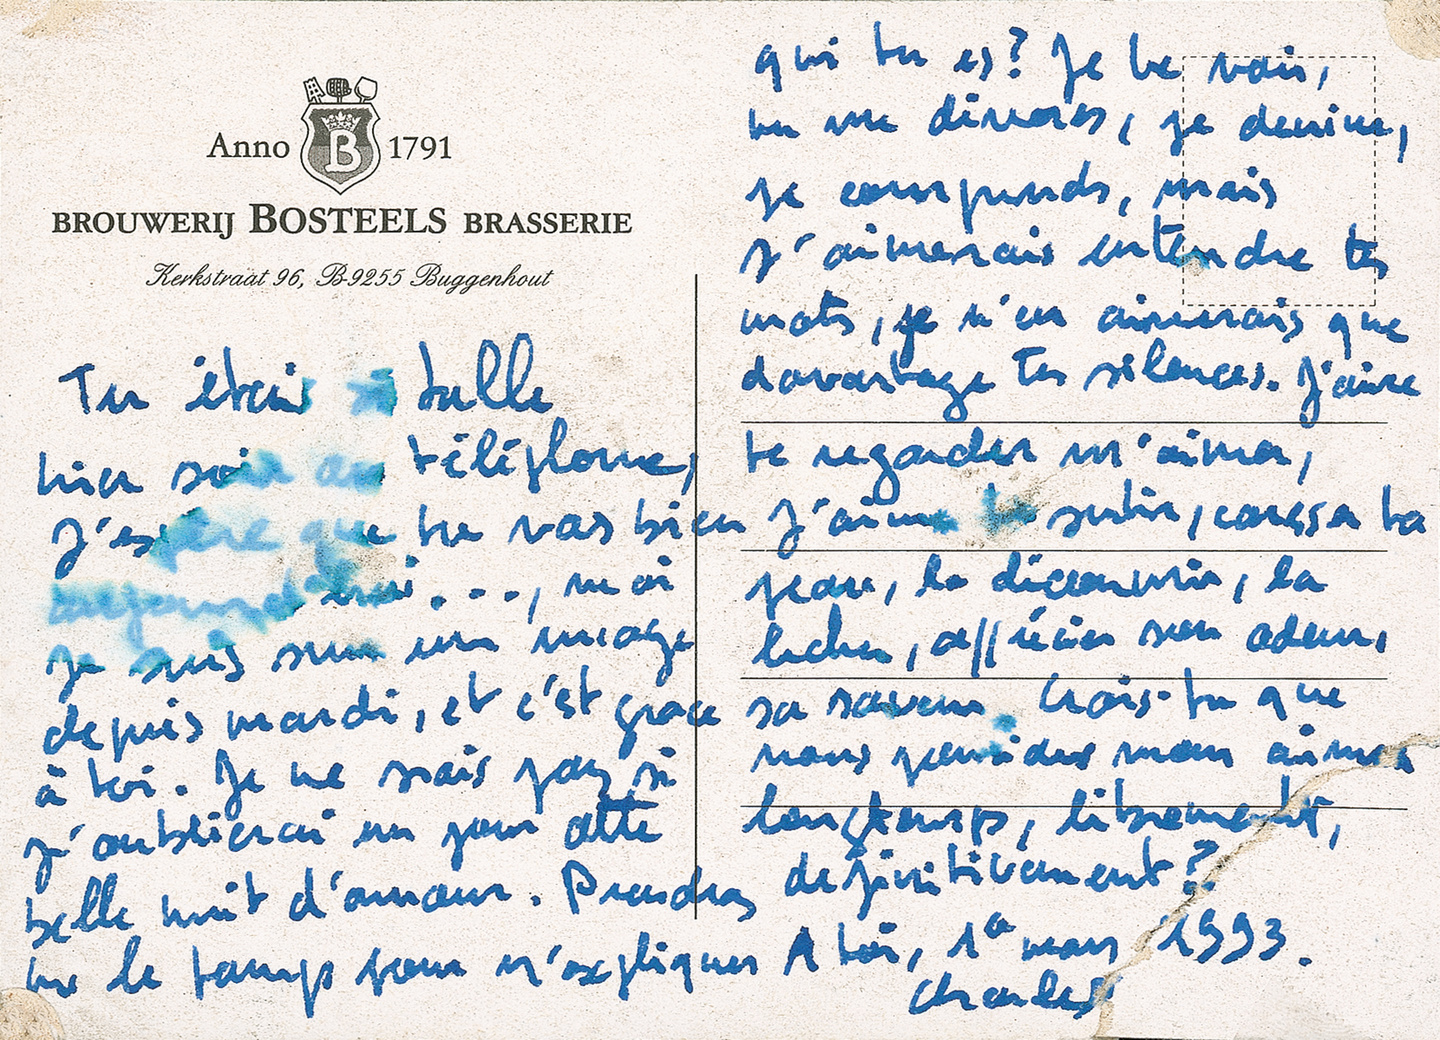 Anno B 1791
BROUWERIJ BOSTEELS BRASSERIE
Kerkstraat 96, B-9255 Buggenhout
Tu étais si belle
hier soir au téléphone,
J'espère que tu vas bien
aujourd'hui..., moi
je suis sur un nuage
depuis mardi, et c'est grace
à toi. Je ne sais pas si
j'oublierai un jour cette
belle nuit d'amour. Prendras
tu le temps pour m'expliquer
qui tu es? Je te vois,
tu me dévores, je devine,
je comprends, mais
j'aimerais entendre tes
mots, je n'en aimerais que
davantage tes silences. J'aime
te regarder m'aimer,
J'aime te sentir, caresser ta
peau, la découvrir, la
lécher, apprécier son odeur,
sa saveur. Crois-tu que
nous puissions nous aimer
longtemps, librement,
définitivement?
A toi, 1er mars 1993.
Charles